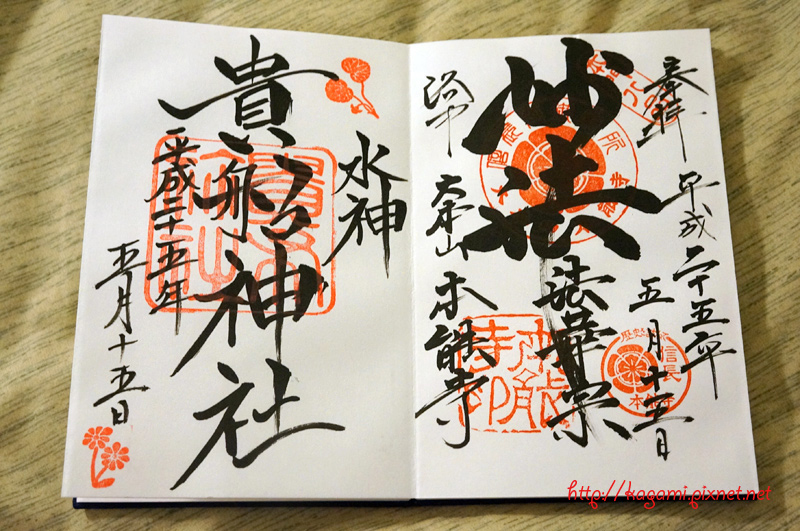 奉拝
平成二十五年
五月十五日
妙法
法華宗
洛中
大本山
本能寺
信長
本能寺
本能寺印
水神
貴船神社
平成二十五年
五月十五日
http://kagami.pixnet.net